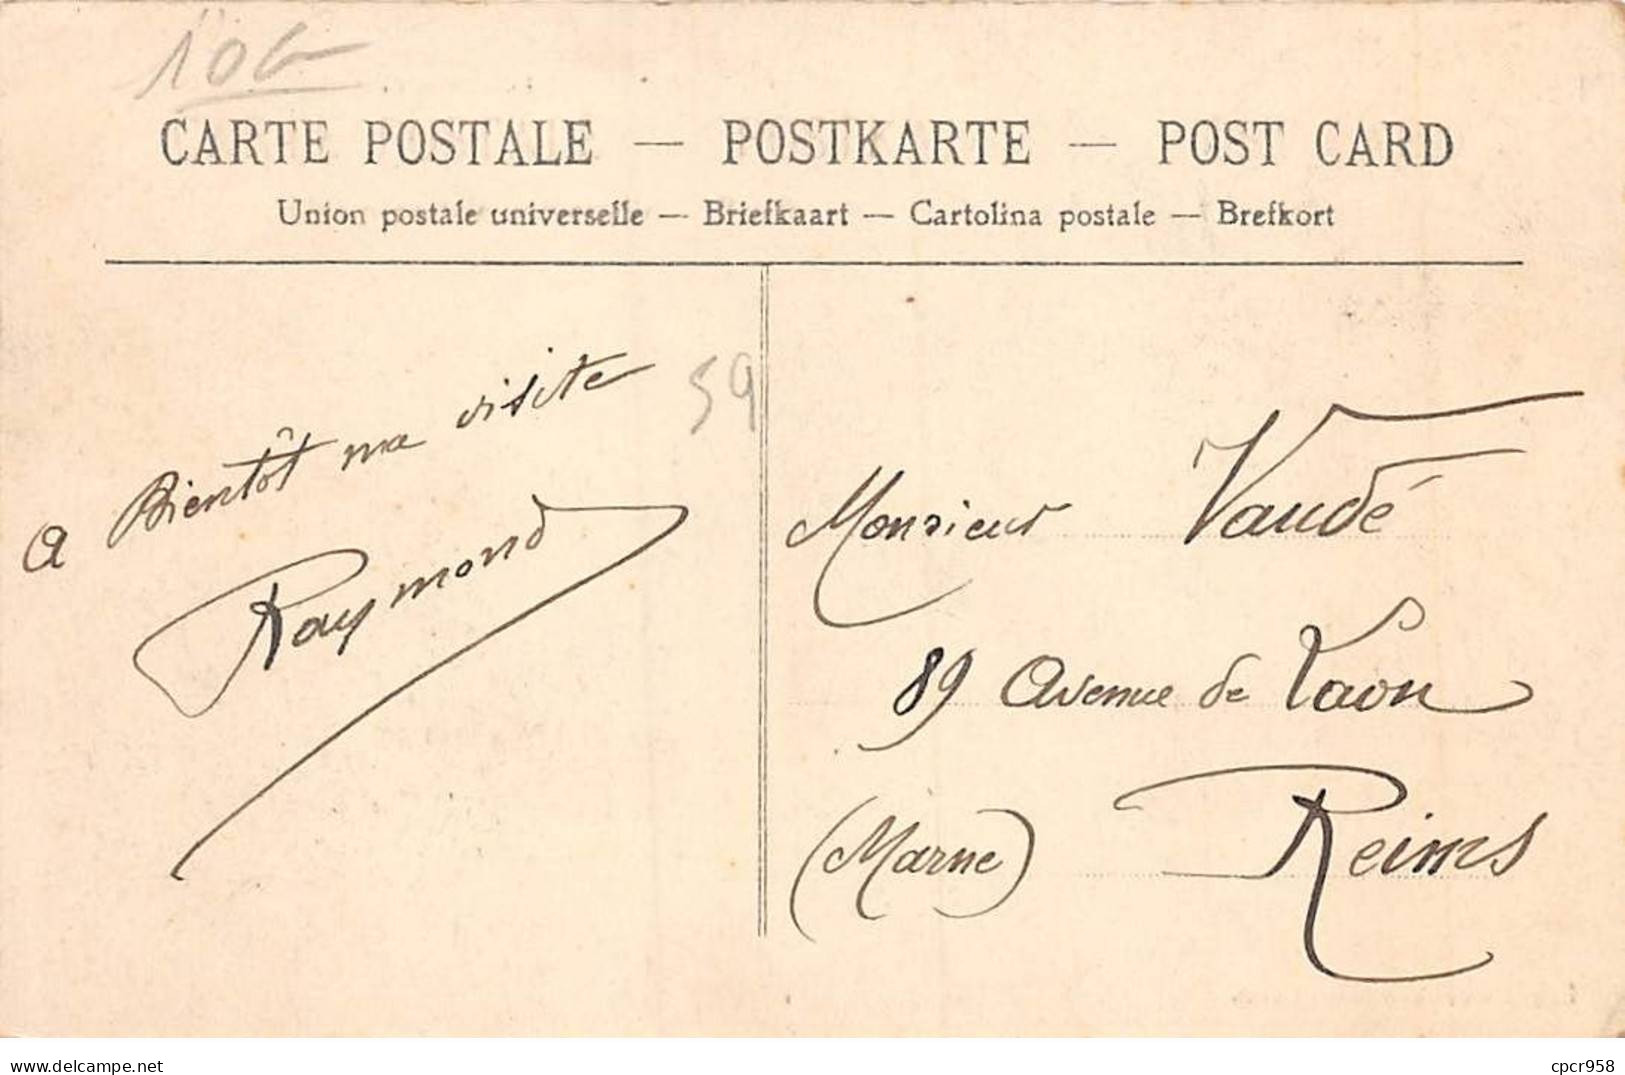 10G
CARTE POSTALE — POSTKARTE — POST CARD
Union postale universelle — Briefkaart — Cartolina postale — Brefkort
A Bientôt ma visite
Raymond
59
Monsieur Vaudé
89 Avenue de Laon
(Marne) Reims
www.delcampe.net
cpcr958